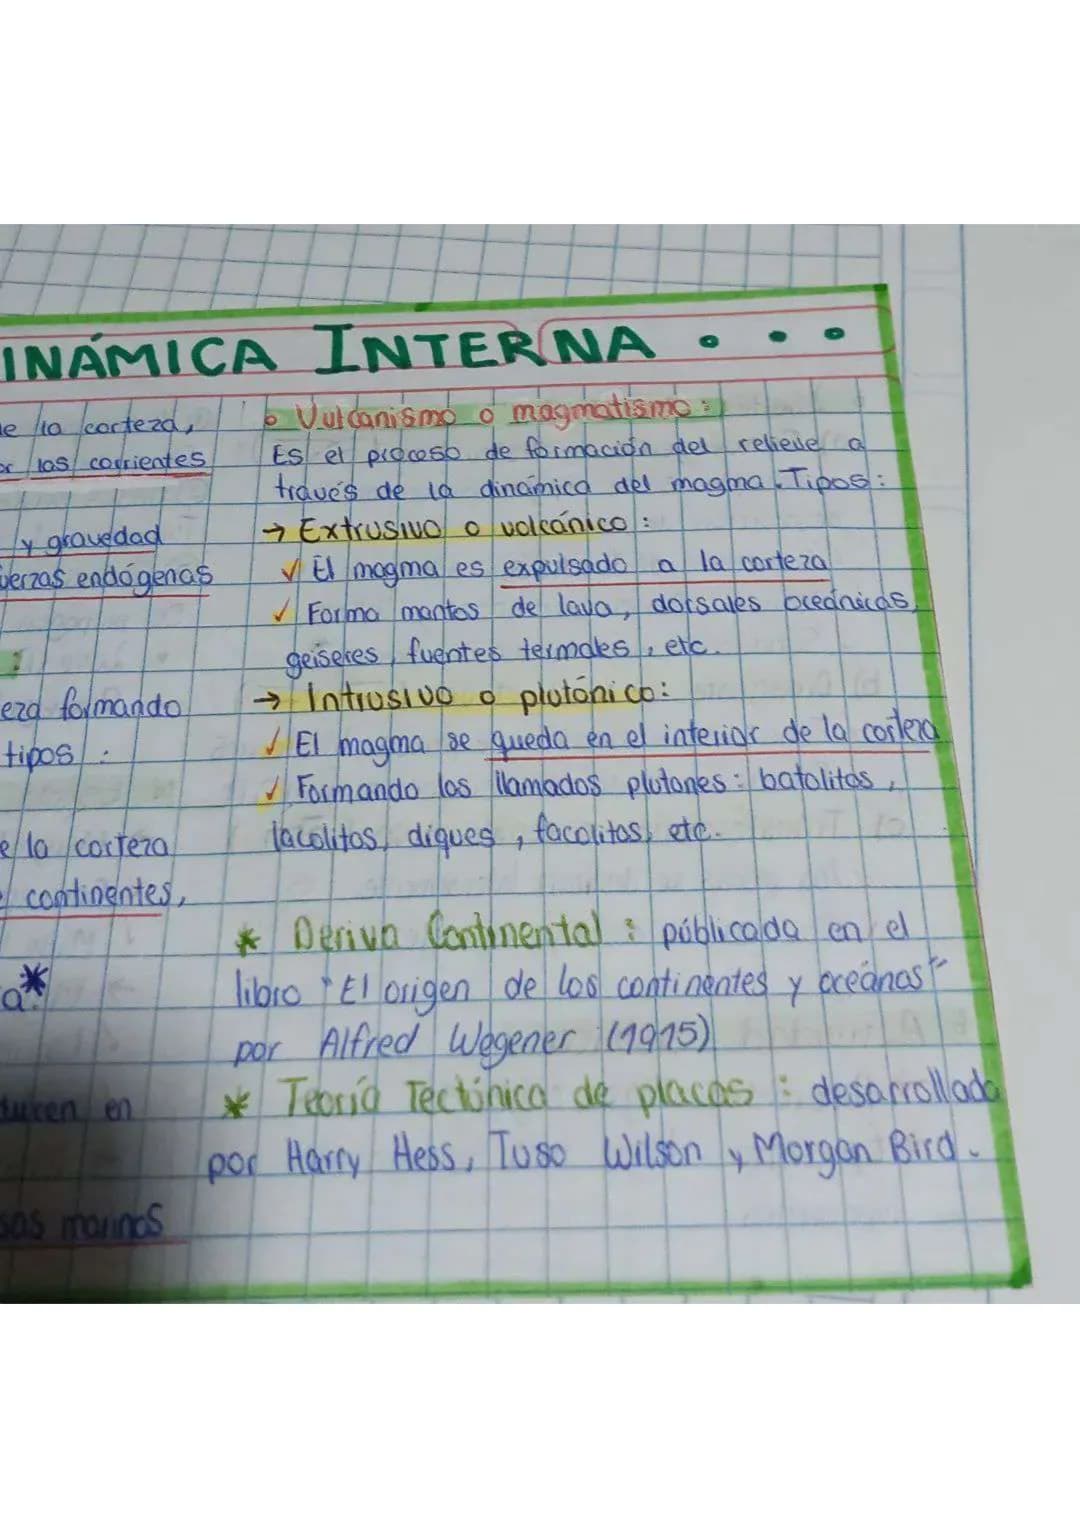 INÁMICA INTERNA . . .
de la corteza,
or las corrientes
y gravedad
uerzas endógenas
:
eza formando
tipos :
e la corteza
e continentes,
a*
ducen en
sas marinos
• Vulcanismo o magmatismo :
Es el proceso de formación del relieve a
través de la dinámica del magma. Tipos :
→ Extrusivo o volcánico :
✓ El magma es expulsado a la corteza
✓ Forma mantos de lava, dorsales oceánicas,
geiseres, fuentes termales, etc.
→ Intrusivo o plutónico :
✓ El magma se queda en el interior de la corteza
✓ Formando los llamados plutones : batolitos,
lacolitos, diques, facolitos, etc.
* Deriva Continental : públicada en el
libro "El origen de los continentes y oceános"
por Alfred Wegener (1915)
* Teoría Tectónica de placas : desarrollada
por Harry Hess, Tuso Wilson y Morgan Bird.